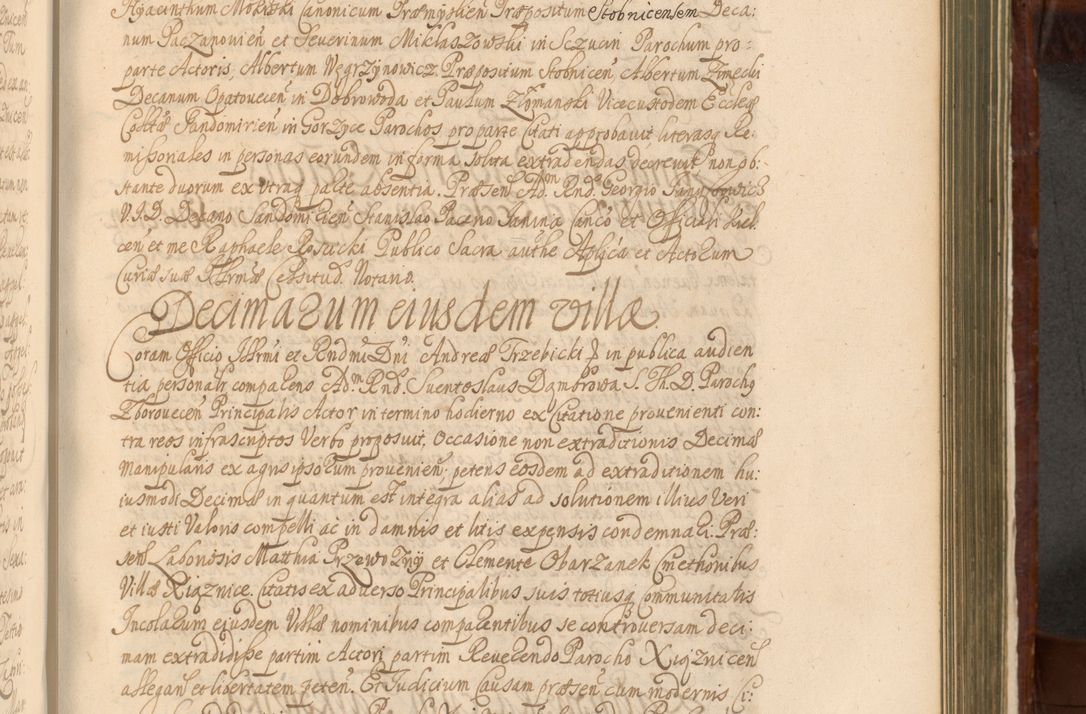 Hyacinthum Mokirski Canonicum Præmyslien Præpositum Stobnicensem Deca:
num Paczanovien et Severinum Miklaszowski in Sczucin Parochum pro
parte Actoris, Albertum Węgrzynowicz Præpositum Stobnicen, Albertum Zimecki
Decanum Opatovecen in Dobrowoda et Paulum Zlymanski Vicecustodem Eccleæ
Colltæ Sandomirien in Gorzyce Parochos pro parte Citati approbavit, literasq Re:
missoriales in personas eorundem in forma solita extradendas decrevit non ob:
stante duorum ex utraq parte absentia. Præsen Adm Rndo Georgio
V.I.D. Decano Sandomirien Stanislao Pacano Canco et Officiali Kiel:
cen et me Raphaele Rosacki Publico Sacra authe Aplica et Actorum
Curiæ suæ Notario.
Decimarum eiusdem villæ.
Coram Officio Illrmi et Rndmi Dni Andreæ Trzebicki in publica audien
tia personalr comparens Adm Rnd. Sventoslaus Dąmbrowa S. Th. D. Parochq
Zborovecen Principalis Actor in termino hodierno ex Citatione provenienti con:
tra reos infrascriptos Verbo proposuit, Occasione non extraditionis Decimæ
Manipularis ex agris ipsorum provenien, petens eosdem ad extraditionem hu:
iusmodi Decimæ in quantum est integra alias ad solutionem illius Veri
et iusti Valoris compelli ac in damnis et litis expensis condemnari. Præ:
sen Laboriosis Matthia Przewozny et Clemente Obarzanek Cmethonibus
Villæ Xiąznice. Citatis ex adverso Principalibus suis totiusq Communitatis
Incolarum eiusdem Villæ nominibus comparentibus se controversam deci:
mam extradidisse partim Actori partim Reverendo Parocho Xiąznicen
allegan et libertatem peten. Et Iudicium Causam præsen cum modernis Ci: